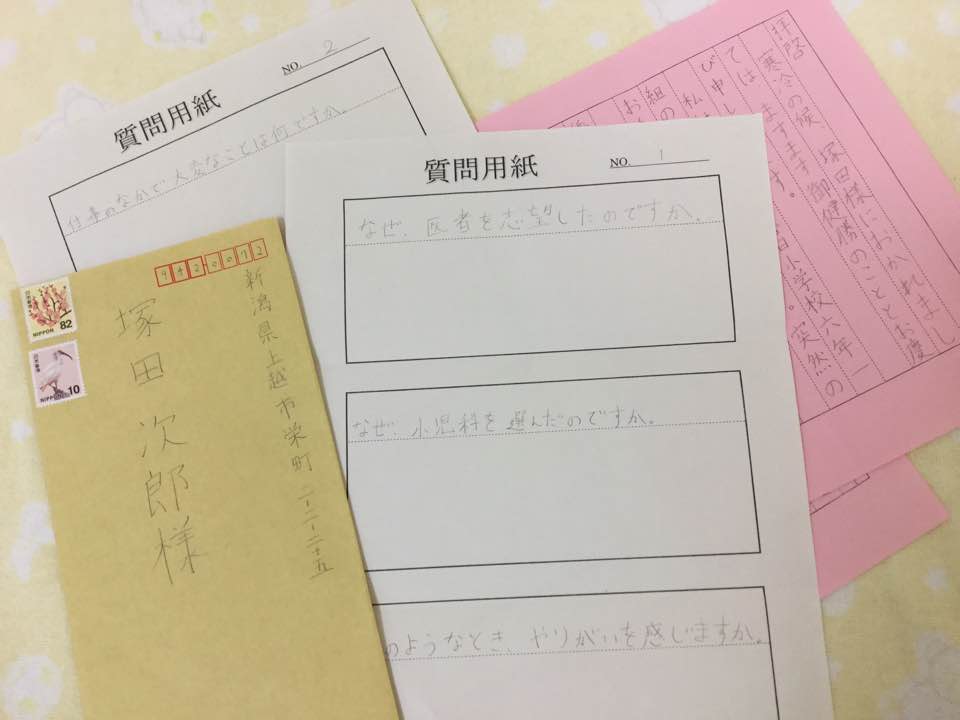 質問用紙
NO. 2
仕事のなかで大変なことは何ですか。
質問用紙
NO. 1
なぜ、医者を志望したのですか。
なぜ、小児科を選んだのですか。
のようなとき、やりがいを感じますか。
942-0072
新潟県上越市栄町二-二-二十五
塚田次郎様
日本郵便
NIPPON 82
日本郵便
NIPPON 10
拝啓
寒冷の候、塚田様におかれまし
ては、ますます御健勝のこととお慶
び申し
ます。
突然の
私は
小学校六年一
組の